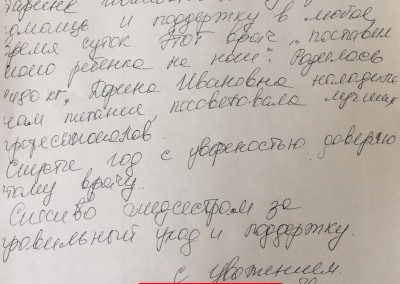 помощь и поддержку в любое
время суток. Этот врач „поставил
моего ребенка на ноги". Родилась
480 кг, Ивановна наладила
нам питание, посоветовала лучших
профессионалов.
Спустя год с уверенностью доверяю
этому врачу.
Спасибо медсестрам за
правильный уход и поддержку.
с уважением.